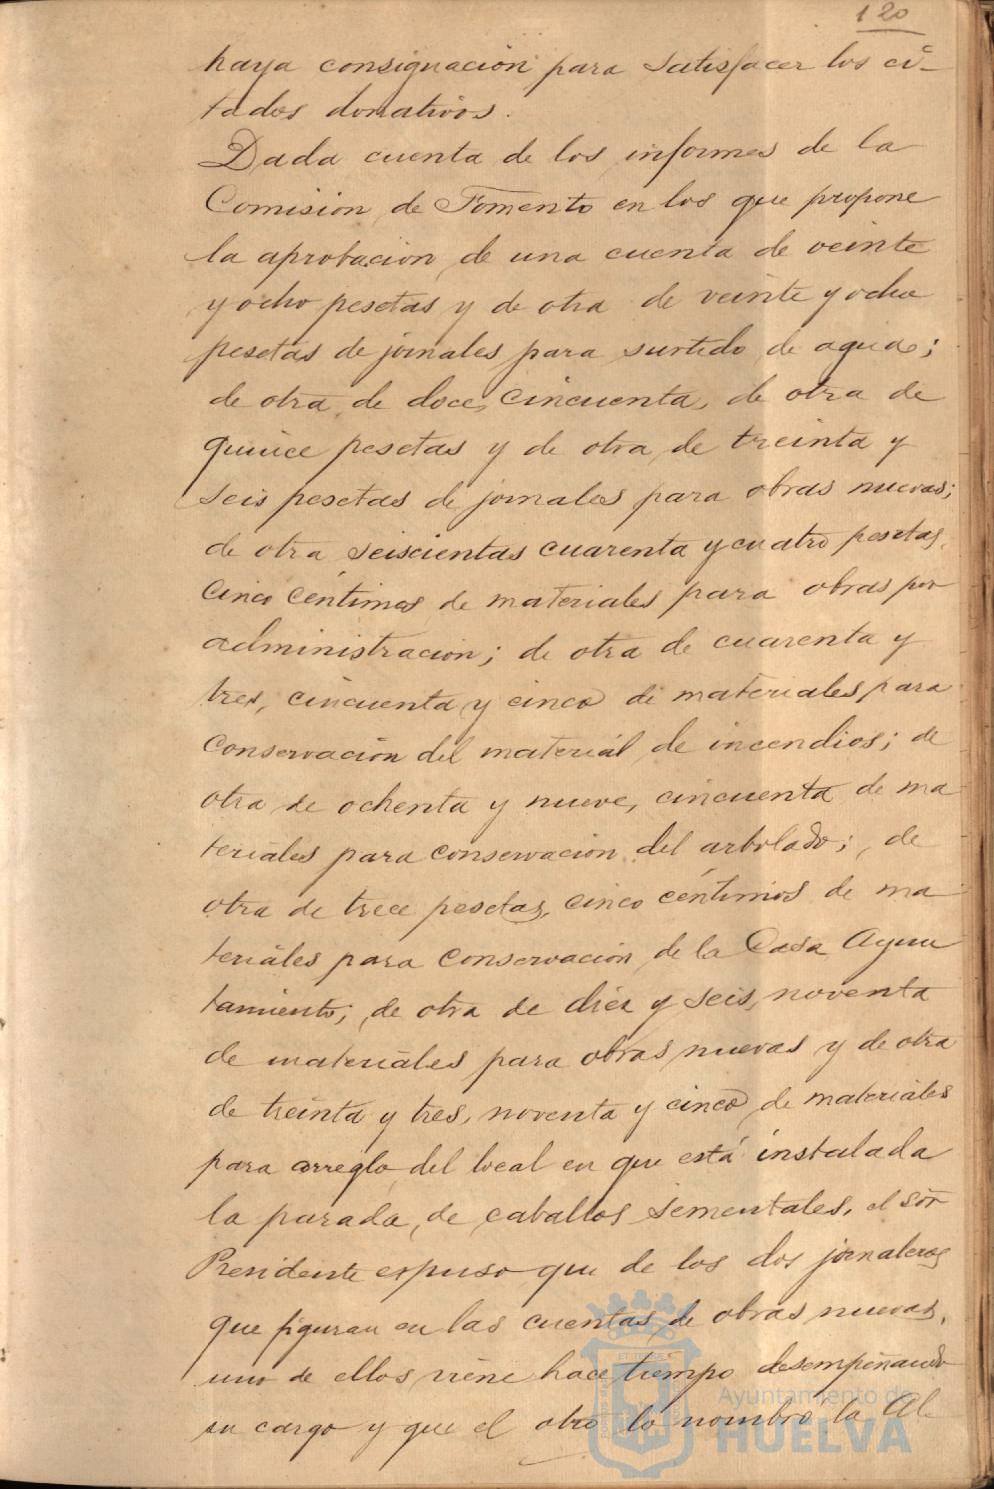 120
haya consignación para satisfacer los ci-
tados donativos.
Dada cuenta de los informes de la
Comisión de Fomento en los que propone
la aprobación de una cuenta de veinte
y ocho pesetas y de otra de veinte y ocho
pesetas de jornales para surtido de aguas;
de otra de doce, cincuenta, de otra de
quince pesetas y de otra de treinta y
seis pesetas de jornales para obras nuevas;
de otra seiscientas cuarenta y cuatro pesetas,
cinco céntimos de materiales para obras por
administración; de otra de cuarenta y
tres, cincuenta y cinco de materiales para
conservación del material de incendios; de
otra de ochenta y nueve, cincuenta de ma
teriales para conservación del arbolado; de
otra de trece pesetas, cinco céntimos de ma
teriales para conservación de la Casa Ayun
tamiento; de otra de diez y seis, noventa
de materiales para obras nuevas y de otra
de treinta y tres, noventa y cinco de materiales
para arreglo del local en que está instalada
la parada de caballos sementales, el Sõr
Presidente expuso que de los dos jornaleros
que figuran en las cuentas de obras nuevas,
uno de ellos viene hace tiempo desempeñando
su cargo y que el otro lo nombró la Al-
Ayuntamiento de
HUELVA